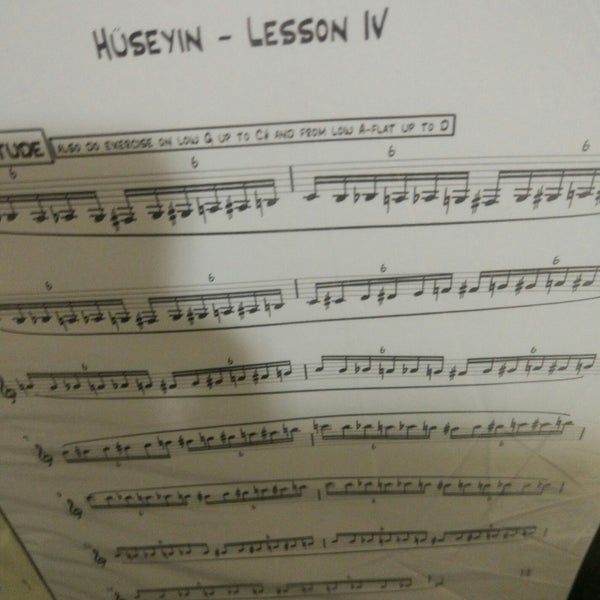 HÜSEYIN - LESSON IV
TUDE
ALSO DO EXERCISE ON LOW G UP TO C# AND FROM LOW A-FLAT UP TO D
6 6 6 6
6 6 6 6
6 6 6 6
6 6 6 6